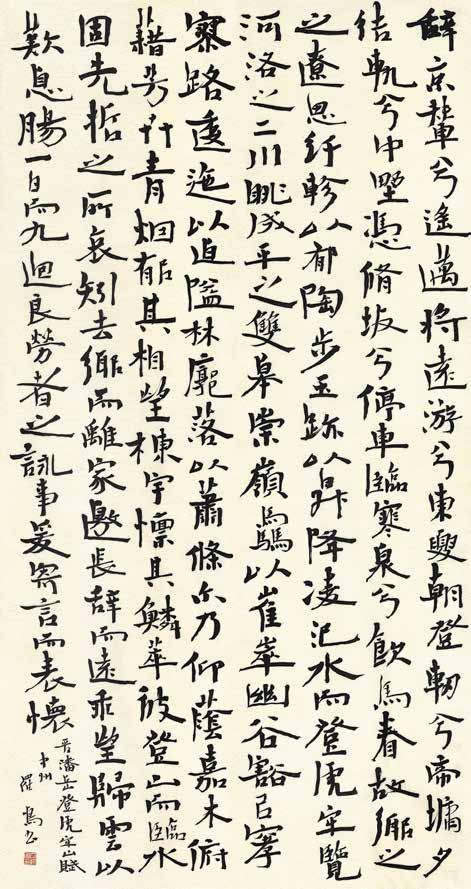 辭京輦兮遙邁将遠游兮東夏朝登軔兮帝墉夕
结軌兮中墅憑脩坂兮停車臨寒泉兮飲馬眷故鄉之
之遼思紆軫以郁陶步玉跡以昇降凌汜水而登虎牢覽
河洛之二川眺成平之雙皋崇嶺驫以崔崒幽谷豁㠯寥
寥路逶迤以迫隘林廓落以蕭條尔乃仰蔭嘉木俯
藉芳卉青烟郁其相望棟宇懍其鱗萃彼登山而臨水
固先哲之所哀矧去鄉而離家邈長辞而遠乖望歸雲以
歎息腸一日而九迴良勞者之詠事爰寄言而表懷
晋潘岳登虎牢山賦
羅